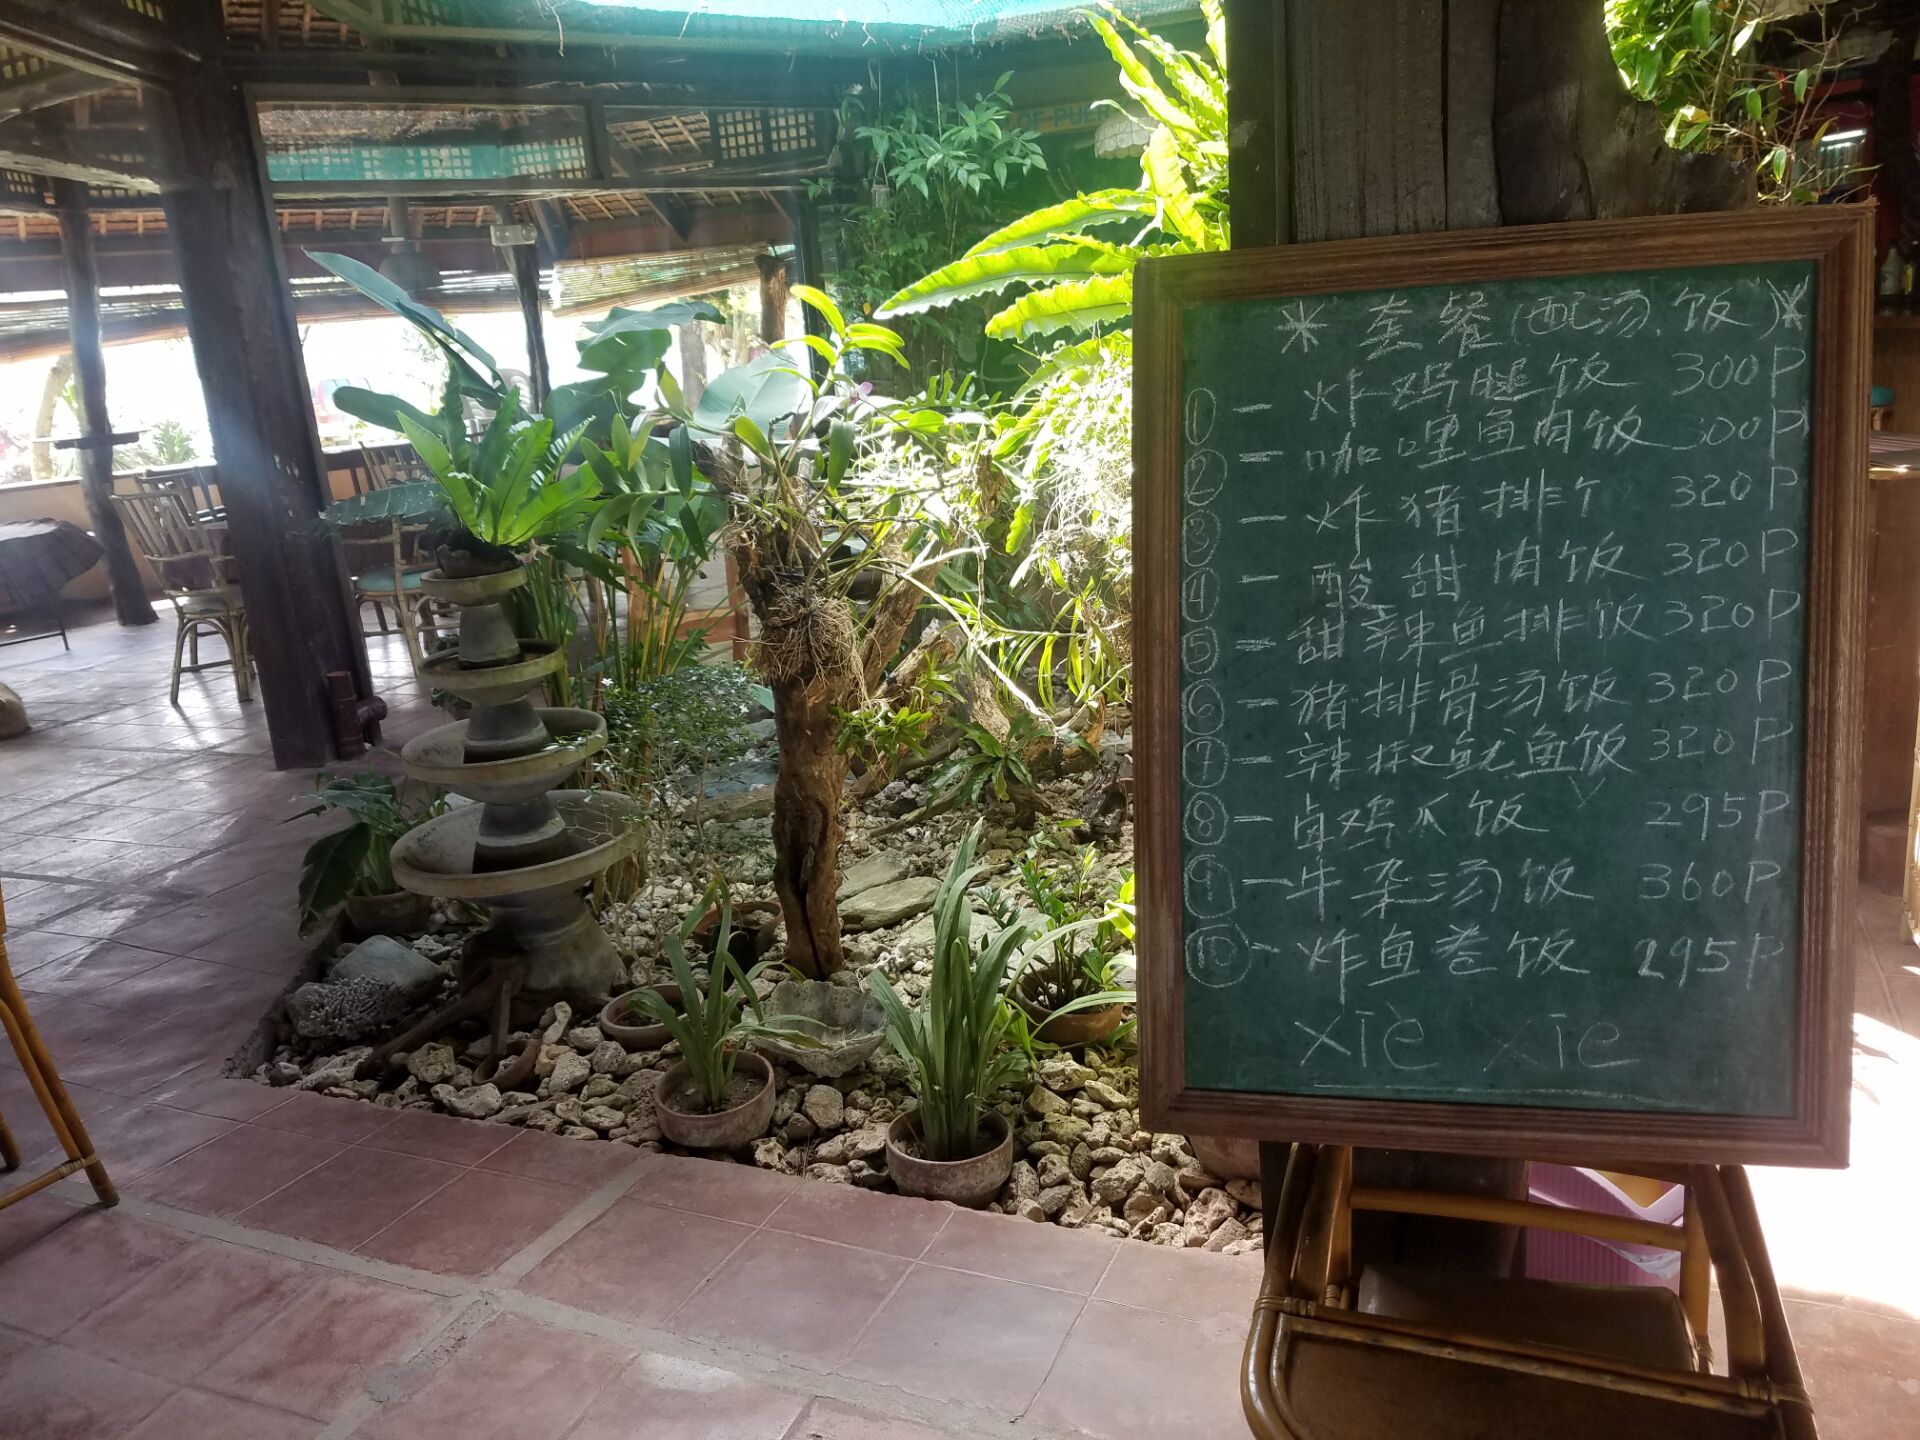 OF PUER
* 套餐(配汤、饭)*
① - 炸鸡腿饭 300P
② = 咖哩鱼肉饭 300P
③ - 炸猪排饣 320P
④ - 酸甜肉饭 320P
⑤ = 甜辣鱼排饭 320P
⑥ - 猪排骨汤饭 320P
⑦ - 辣椒鱿鱼饭 320P
⑧ - 卤鸡爪饭 295P
⑨ - 牛杂汤饭 360P
⑩ - 炸鱼卷饭 295P
xīè xīe